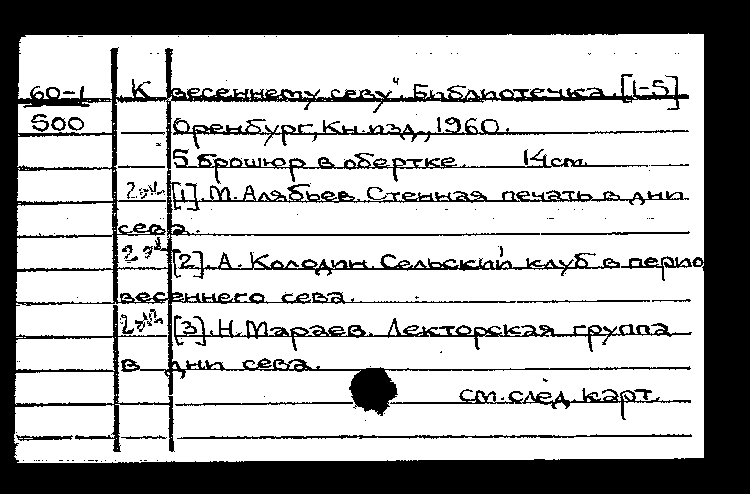 60-1 К весеннему севу". Библиотечка. [1-5]
500 Оренбург, Кн.изд., 1960.
5 брошюр в обертке. 14 см.
2 экз [1]. М. Алябьев. Стенная печать в дни
сева.
2 экз [2]. А. Колодин. Сельский клуб в перио
весеннего сева.
2 экз [3]. Н. Мараев. Лекторская группа
в дни сева.
см. след. карт.